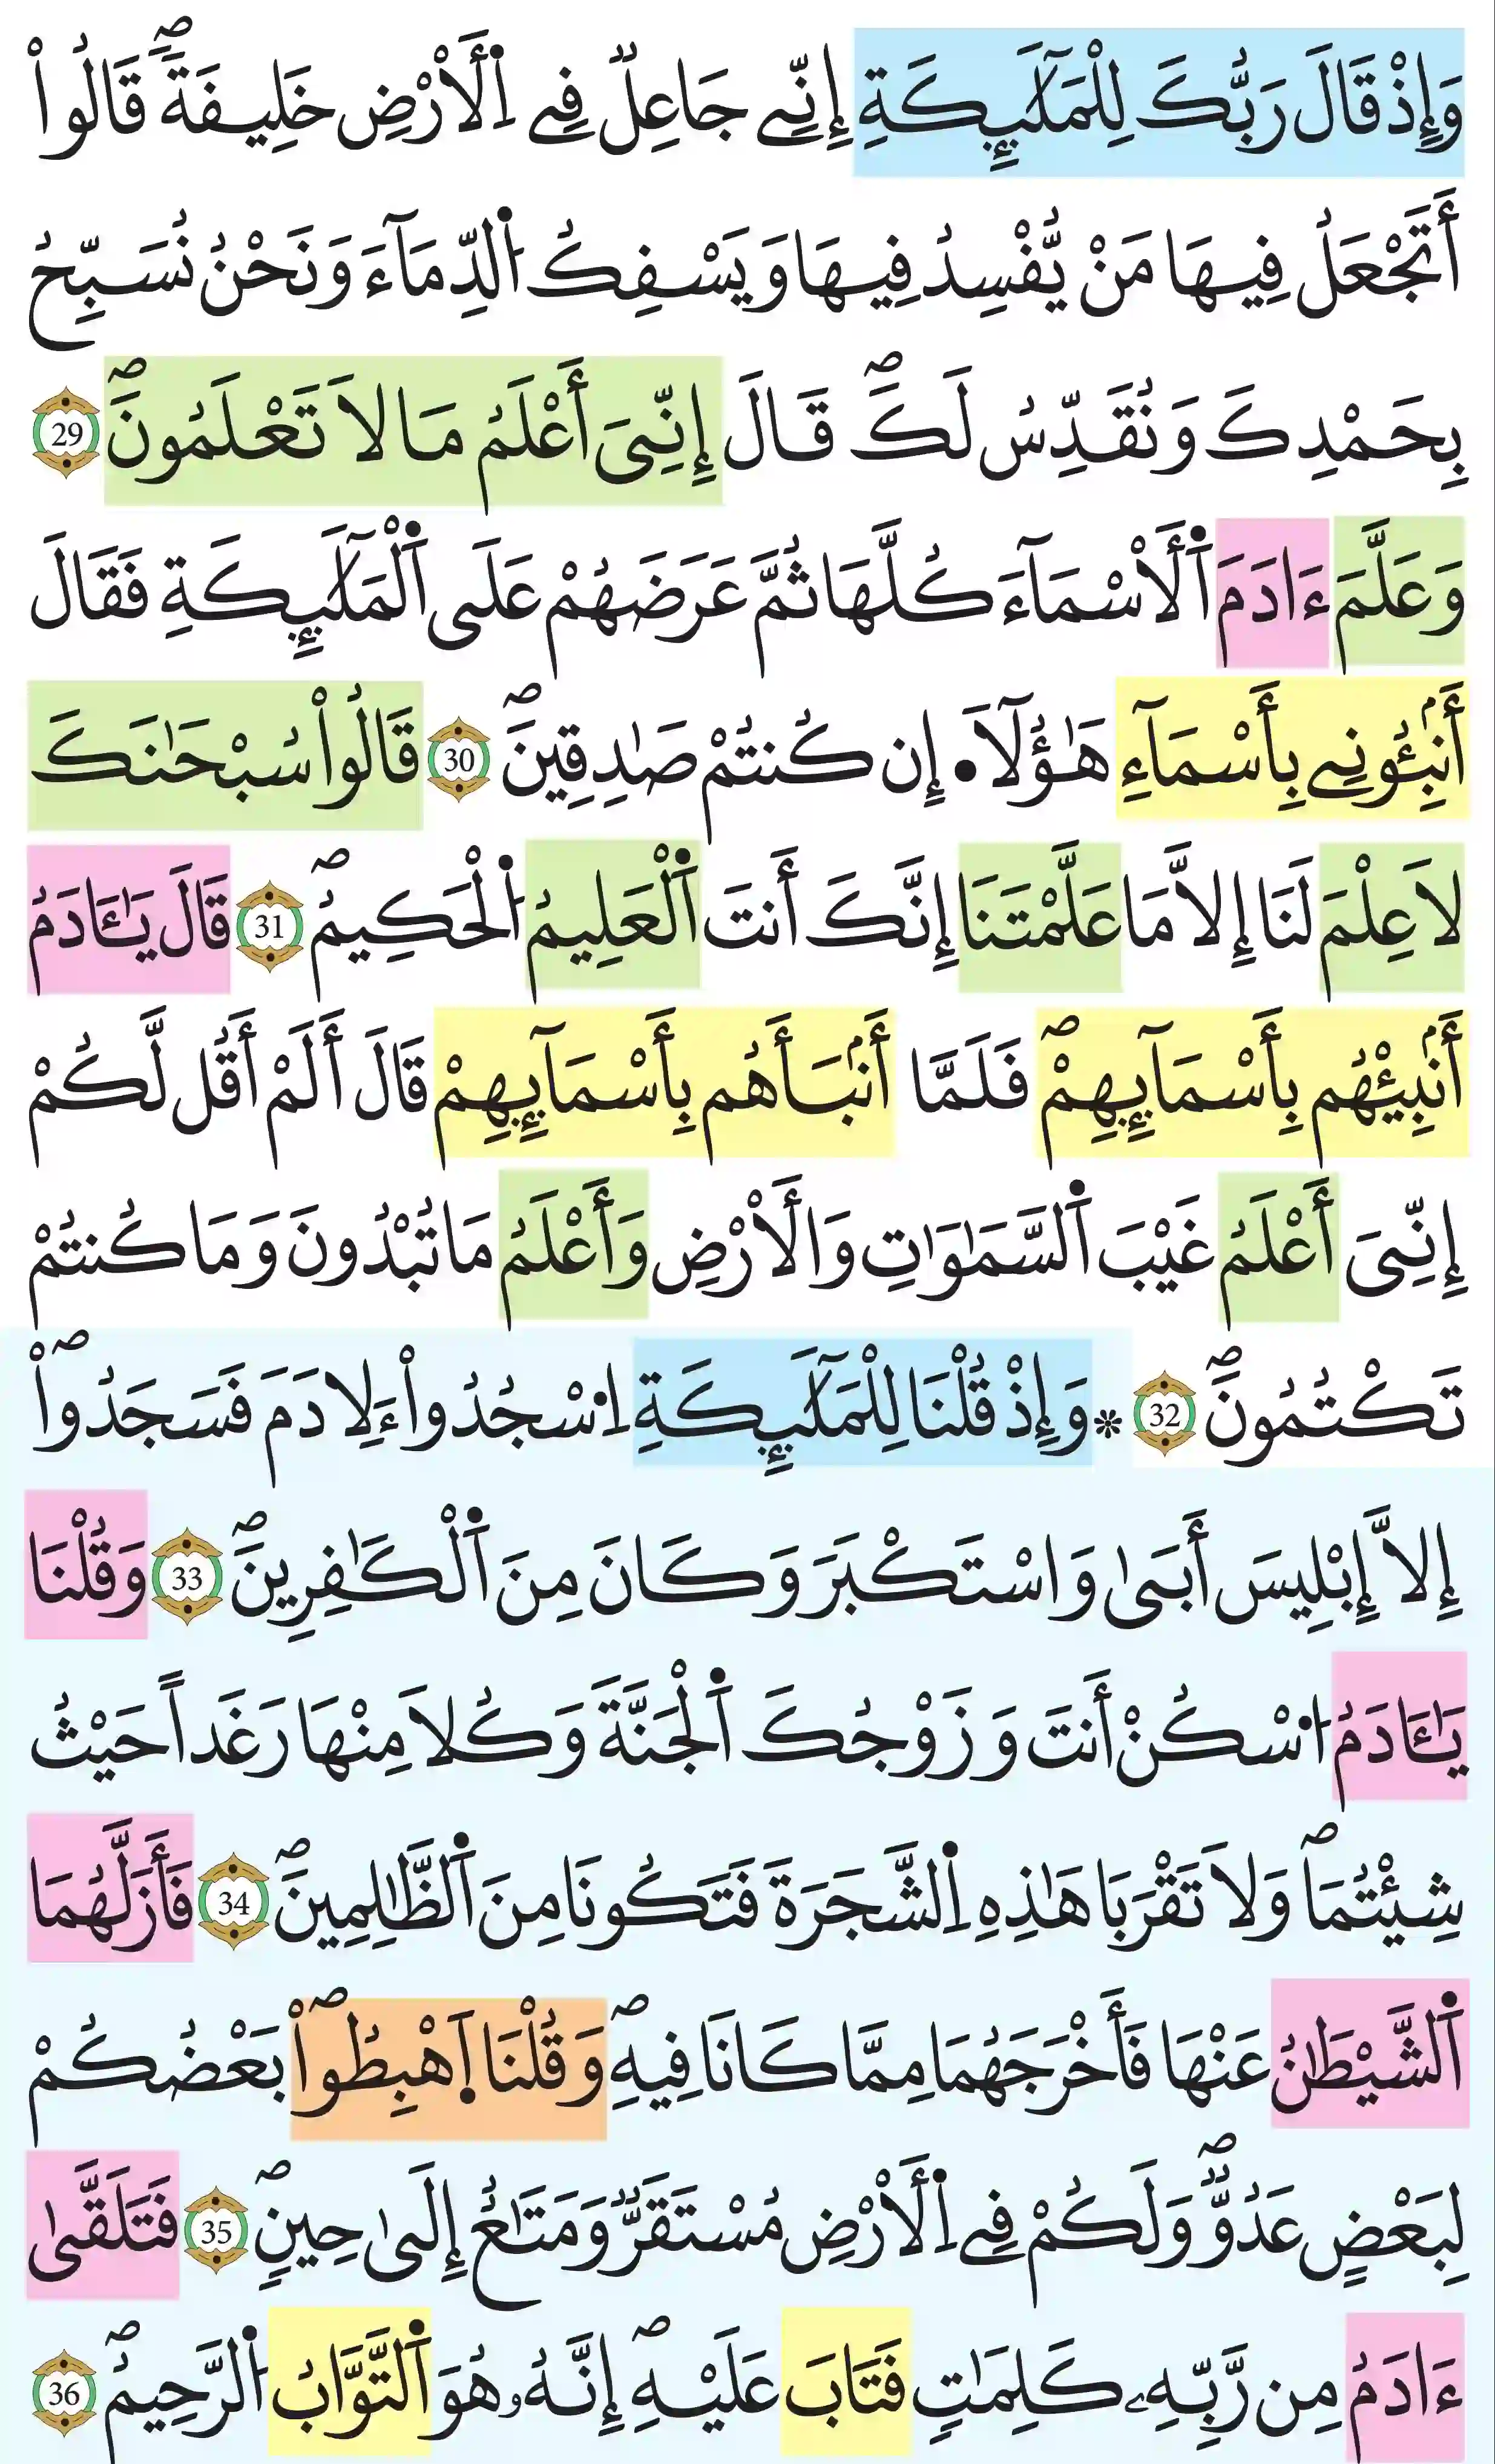 وَإِذْ قَالَ رَبُّكَ لِلْمَلَٰٓئِكَةِ إِنِّے جَاعِلٞ فِے اِ۬لَارْضِ خَلِيفَةٗۖ قَالُوٓاْ
أَتَجْعَلُ فِيهَا مَنْ يُّفْسِدُ فِيهَا وَيَسْفِكُ اُ۬لدِّمَآءَ وَنَحْنُ نُسَبِّحُ
بِحَمْدِكَ وَنُقَدِّسُ لَكَۖ قَالَ إِنِّيَ أَعْلَمُ مَا لَا تَعْلَمُونَۖ 29
وَعَلَّمَ ءَادَمَ اَ۬لَاسْمَآءَ كُلَّهَا ثُمَّ عَرَضَهُمْ عَلَى اَ۬لْمَلَٰٓئِكَةِ فَقَالَ
أَنۢبِـُٔونِے بِأَسْمَآءِ هَٰٓؤُلَآ• إِن كُنتُمْ صَٰدِقِينَۖ 30 قَالُواْ سُبْحَٰنَكَ
لَا عِلْمَ لَنَا إِلَّا مَا عَلَّمْتَنَا إِنَّكَ أَنتَ اَ۬لْعَلِيمُ اُ۬لْحَكِيمُۖ 31 قَالَ يَٰٓـَٔادَمُ
أَنۢبِئْهُم بِأَسْمَآئِهِمْۖ فَلَمَّا أَنۢبَأَهُم بِأَسْمَآئِهِمْ قَالَ أَلَمْ أَقُل لَّكُمْ
إِنِّيَ أَعْلَمُ غَيْبَ اَ۬لسَّمَٰوَٰتِ وَالَارْضِ وَأَعْلَمُ مَا تُبْدُونَ وَمَا كُنتُمْ
تَكْتُمُونَۖ 32 * وَإِذْ قُلْنَا لِلْمَلَٰٓئِكَةِ اِ۟سْجُدُواْ ءَلِادَمَ فَسَجَدُوٓاْۖ
إِلَّا إِبْلِيسَ أَبَىٰ وَاسْتَكْبَرَ وَكَانَ مِنَ اَ۬لْكَٰفِرِينَۖ 33 وَقُلْنَا
يَٰٓـَٔادَمُ اُ۟سْكُنْ أَنتَ وَزَوْجُكَ اَ۬لْجَنَّةَ وَكُلَا مِنْهَا رَغَداً حَيْثُ
شِئْتُمَاۖ وَلَا تَقْرَبَا هَٰذِهِ اِ۬لشَّجَرَةَ فَتَكُونَا مِنَ اَ۬لظَّٰلِمِينَۖ 34 فَأَزَلَّهُمَا
اَ۬لشَّيْطَٰنُ عَنْهَا فَأَخْرَجَهُمَا مِمَّا كَانَا فِيهِۖ وَقُلْنَا اَ۪هْبِطُواْۖ بَعْضُكُمْ
لِبَعْضٍ عَدُوّٞۖ وَلَكُمْ فِے اِ۬لَارْضِ مُسْتَقَرّٞ وَمَتَٰعٌ إِلَىٰ حِينٖۖ 35 فَتَلَقَّىٰ
ءَادَمُ مِن رَّبِّهِۦ كَلِمَٰتٖ فَتَابَ عَلَيْهِۖ إِنَّهُۥ هُوَ اَ۬لتَّوَّابُ اُ۬لرَّحِيمُۖ 36